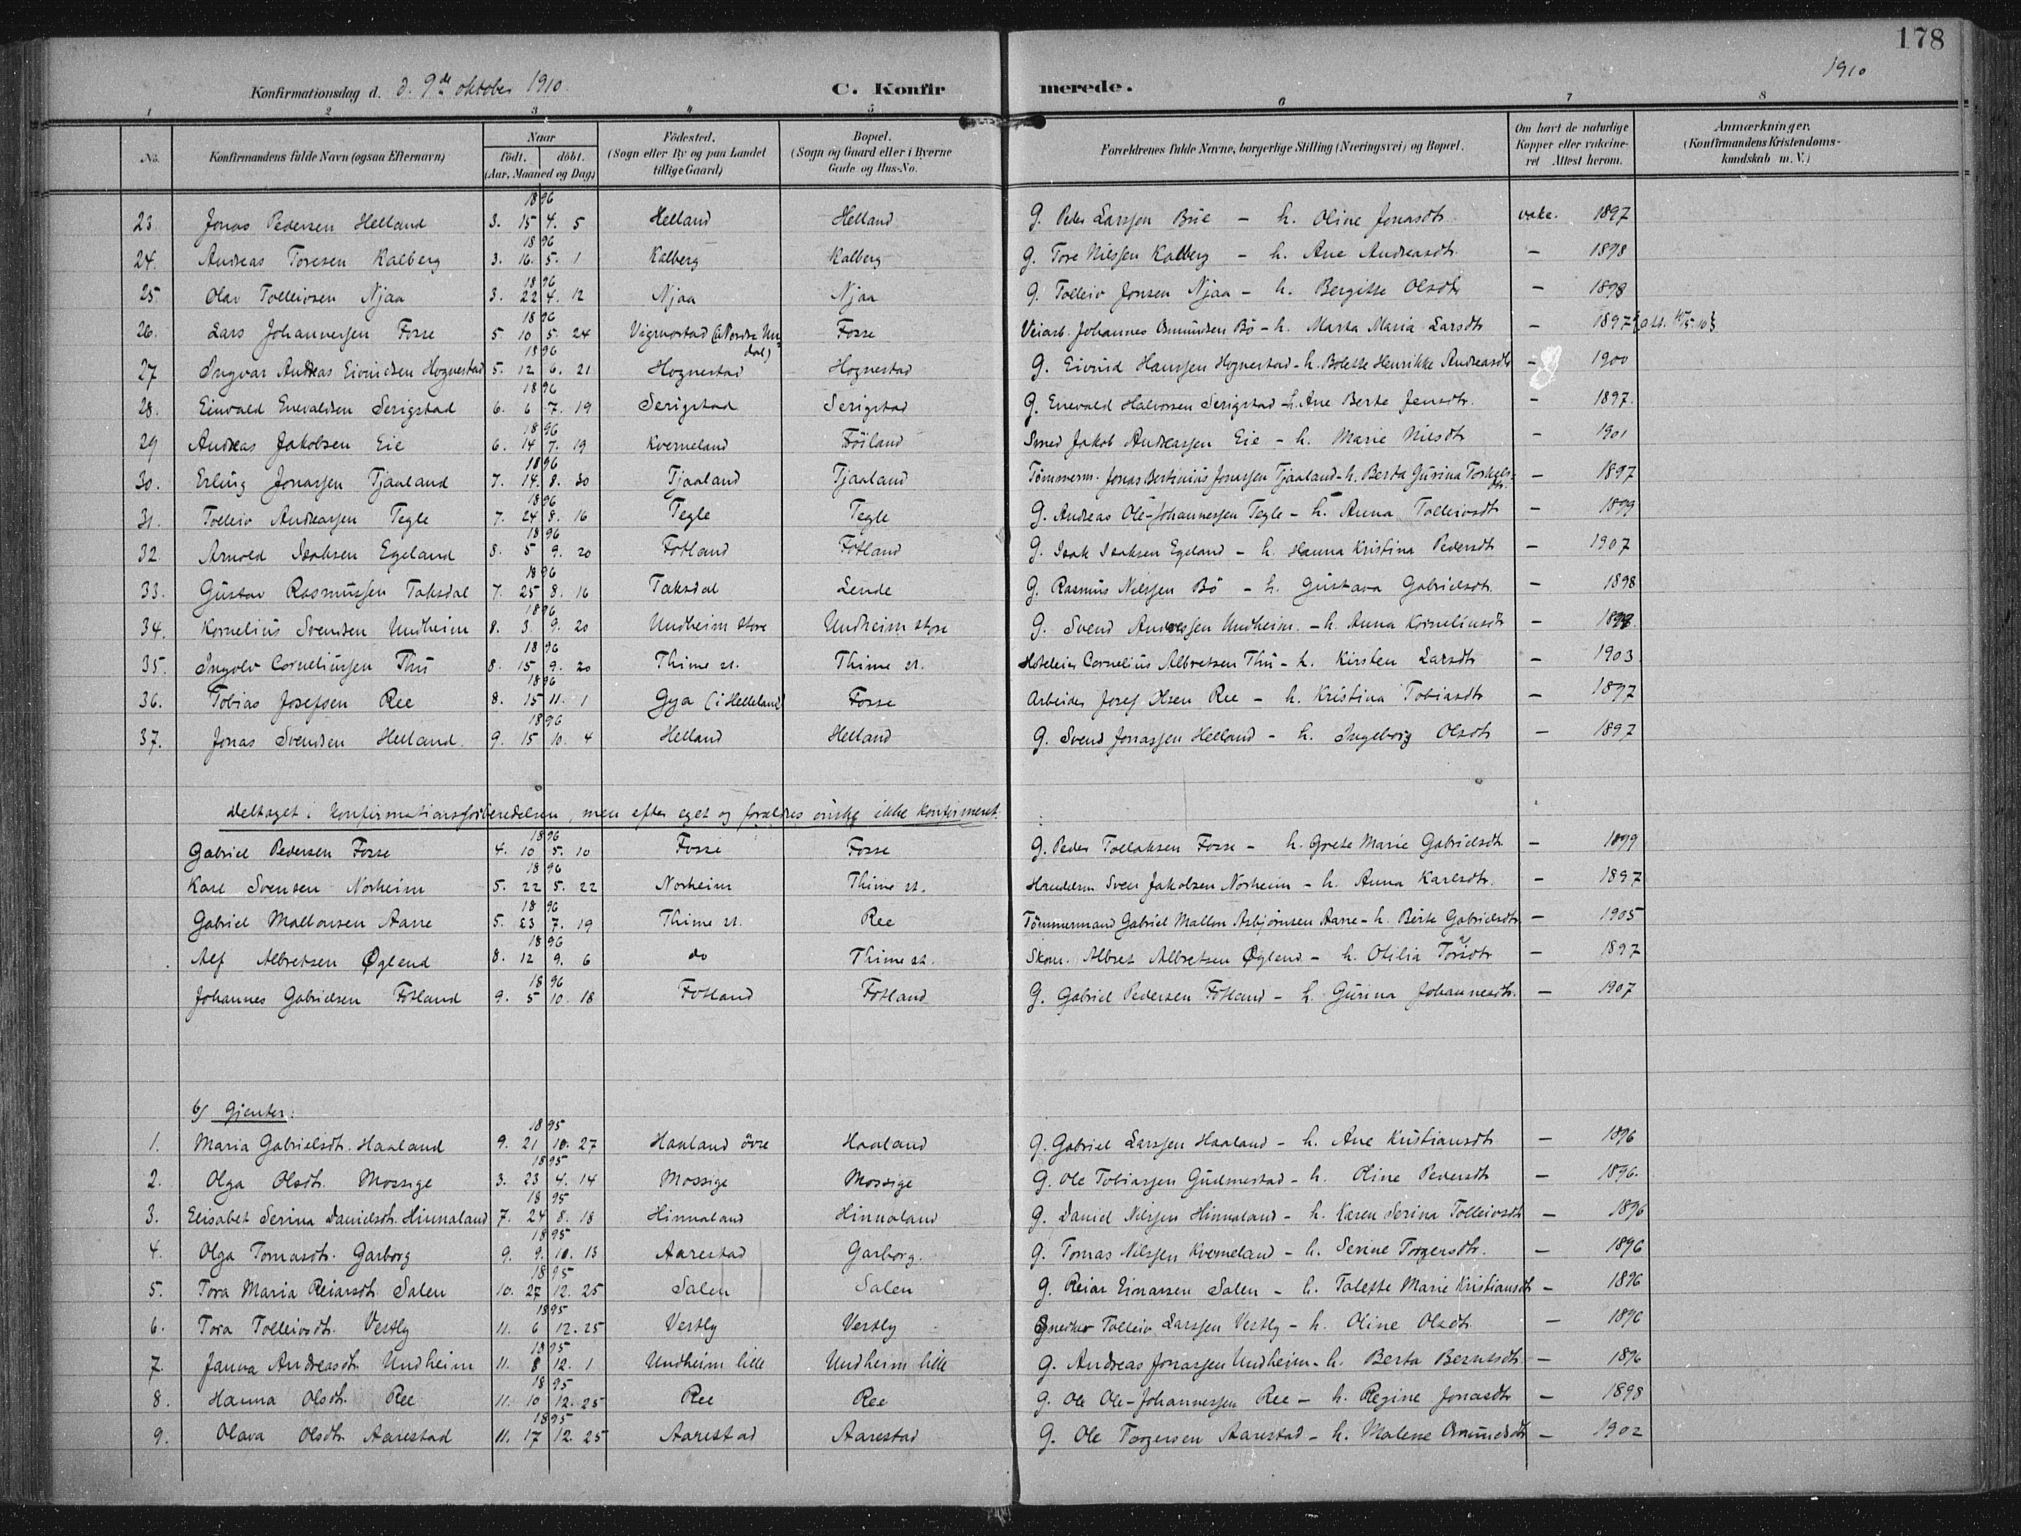 178
Konfirmationsdag d. d. 9de oktober 1910. C. Konfirmerede. 1910
1 2 3 4 5 6 7 8
No. Konfirmandens fulde Navn (ogsaa Efternavn) Naar födt. döbt. (Aar, Maaned og Dag) Födested. (Sogn eller By og paa Landet tillige Gaard) Bopæl. (Sogn og Gaard eller i Byerne Gade og Hus-No. Forældrenes fulde Navne, borgerlige Stilling (Næringsvei) og Bopæl. Om havt de naturlige Kopper eller vakcineret Attest herom. Anmærkninger. (Konfirmandens Kristendomskundskab m. V.)
23. Jonas Pedersen Helland 1896 3. 15 4. 5 Helland Helland G. Peder Larssen Bue - h. Oline Jonasdtr. vakc. 1897
24. Andreas Toresen Kalberg 1896 3. 16. 5. 1 Kalberg Kalberg G. Tore Nilssen Kalberg - h. Ane Andreasdtr. - 1898
25. Olav Tolleivsen Njaa 1896 3. 22 4. 12 Njaa Njaa G. Tolleiv Jonsen Njaa - h. Bergitte Olsdtr - 1898
26. Lars Johannessen Fosse 1896 5 10 5. 24 Vigmostad (i Nordre Undal) Fosse Veiarb. Johannes Osmundsen Bö - h. Marta Maria Larsdtr - 1897
27 Ingvar Andreas Eivindsen Hognestad 1896 5. 12 6. 21 Hognestad Hognestad G. Eivind Hanssen Hognestad - h. Bolette Henrikke Andreasdtr - 1900
28. Einvald Enevaldsen Serigstad 1896 6. 6 7. 19 Serigstad Serigstad G. Enevald Halvorsen Serigstad - h. Ane Berte Jensdtr. - 1897.
29 Andreas Jakobsen Eie 1896 6. 14 7. 19 Kverneland Föiland Smed Jakob Andreassen Eie - h. Marie Nilsdtr - 1901
30. Erling Jonassen Tjaaland 1896 7. 14. 8. 30 Tjaaland Tjaaland Tömmerm. Jonas Bertinius Jonassen Tjaaland - h. Berta Gurina Torkelsdtr. - 1897
31. Tolleiv Andreassen Tegle 1896 7. 24 8. 16 Tegle Tegle G. Andreas Ole-Johannessen Tegle - h. Anna Tolleivsdtr - 1899
32. Arnold Isaksen Egeland 1896 8. 5 9. 20 Fotland Fotland G. Isak Isaksen Egeland - h. Hanna Kristina Pedersdtr - 1907
33. Gustav Rasmussen Taksdal 1896 7. 25 8. 16 Taksdal Lende G. Rasmus Nilssen Bö - h. Gustava Gabrielsdtr. - 1898
34. Kornelius Svendsen Undheim 1896 8. 3. 9. 20 Undheim store Undheim store G. Svend Andreassen Undheim. - h. Anna Korneliusdtr -
35. Ingolv Corneliussen Thu 1896 8. 15 9. 20 Thime st. Thime st. Hoteleier Cornelius Albretsen Thu - h. Kirsten Larsdtr - 1903.
36. Tobias Josefsen Ree 1896 8. 15 11. 1 Gya (i Helleland) Fosse Arbeider Josef Olsen Ree - h. Kristina Tobiasdtr - 1897
37. Jonas Svendsen Helland. 1896 9. 15 10. 4 Helland Helland G. Svend Jonassen Helland - h. Ingeborg Olsdtr - 1897
Deltaget i konfirmationsforberedelsen, men efter eget og forældres önske ikke konfirmeret.
Gabriel Pedersen Fosse 1896 4. 10 5. 10 Fosse Fosse G. Peder Tollaksen Fosse - h. Grete Marie Gabrielsdtr - 1899
Karl Svensen Norheim 1896 5. 22 5. 22 Norheim Thime st. Handelsm Sven Jakobsen Norheim - h. Anna Karlsdtr. - 1897
Gabriel Mallonsen Aarre 1896 5. 23 7. 19 Thime st. Ree Tömmermand Gabriel Mallon Asbjörnsen Aarre - h. Berte Gabrielsdtr - 1905
Alf Albretsen Øglend 1896 8. 12 9. 6 do Thime st. Skom. Albret Albretsen Øglend - h. Otilia Torsdtr - 1897
Johannes Gabrielsen Fotland 1896 9. 5 10. 18 Fotland Fotland G. Gabriel Pedersen Fotland - h. Gurina Johannesdtr. - 1907
b/ Gjenter:
1. Maria Gabrielsdt. Haaland 1895 9. 21 10. 27 Haaland övre Haaland G. Gabriel Larssen Haaland - h. Ane Kristiansdtr - 1896
2. Olga Olsdt. Mossige 1895 3. 23 4. 14 Mossige Mossige G. Ole Tobiassen Gudmestad - h. Oline Pedersdtr - 1896.
3. Elisabet Serina Danielsdt. Hinnaland 1895 7. 24 8. 18 Hinnaland Hinnaland G. Daniel Nilssen Hinnaland - h. Karen Serina Tolleivsdtr - 1896
4. Olga Tomasdt. Garborg 1895 9. 9. 10. 13 Aarestad Garborg. G. Tomas Nilssen Kverneland - h. Serine Torgersdtr. - 1896
5. Tora Maria Reiarsdt. Salen 1895 10. 27 12. 25 Salen Salen G. Reiar Einarsen Salen - h. Talette Marie Kristiansdtr - 1896
6. Tora Tolleivsdt. Vestly 1895 11. 6 12. 25 Vestly Vestly Snedker Tolleiv Larssen Vestly - h. Oline Olsdtr. - 1896
7. Janna Andreasdt. Undheim 1895 11. 8 12. 1 Undheim lille Undheim lille G. Andreas Jonassen Undheim - h. Berta Berntsdtr - 1896
8. Hanna Olsdt. Ree 1895 11. 10 12. 25 Ree Ree G. Ole Ole-Johannessen Ree - h. Regine Jonasdtr - 1898
9. Olava Olsdt. Aarestad 1895 11. 17 12. 25 Aarestad Aarestad G. Ole Torgersen Aarestad - h. Malene Osmundsdtr - 1902